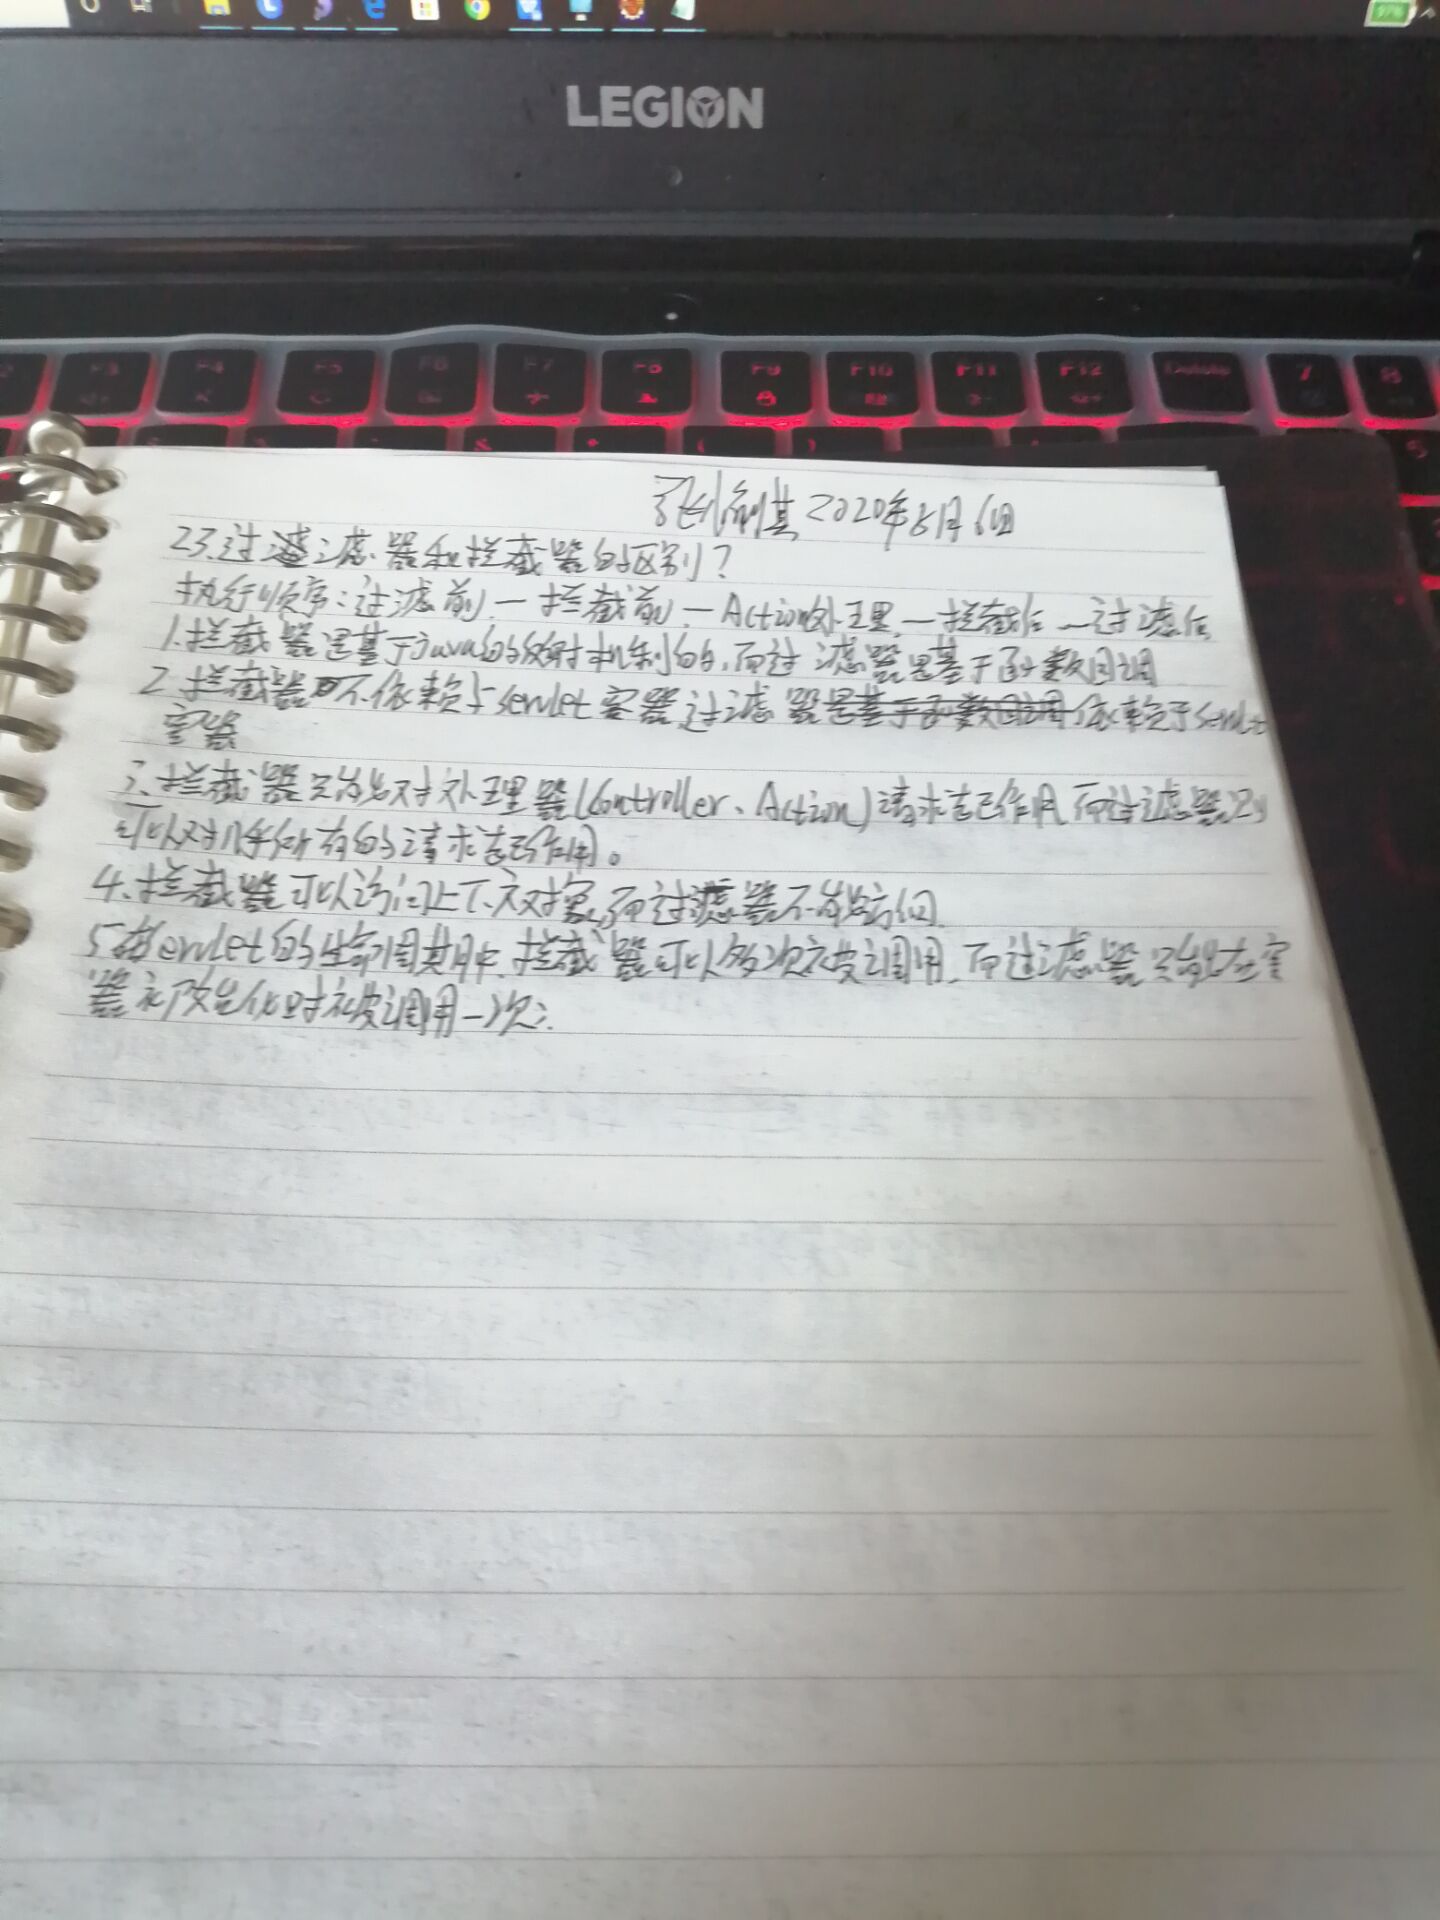 LEGION
F3 F4 F5 F6 F7 F8 F9 F10 F11 F12 Delete 7 8
2020年8月6日
23.过滤器和拦截器的区别?
执行顺序:过滤前—拦截前—Action处理—拦截后—过滤后
1.拦截器是基于Java的反射机制的,而过滤器是基于函数回调
2.拦截器不依赖与servlet容器,过滤器依赖于servlet
容器
3.拦截器只能对处理器(Controller、Action)请求起作用,而过滤器则
可以对几乎所有的请求起作用。
4.拦截器可以访问上下文对象,而过滤器不能访问.
5.在servlet的生命周期中,拦截器可以多次被调用,而过滤器只能在容
器初始化时被调用一次.